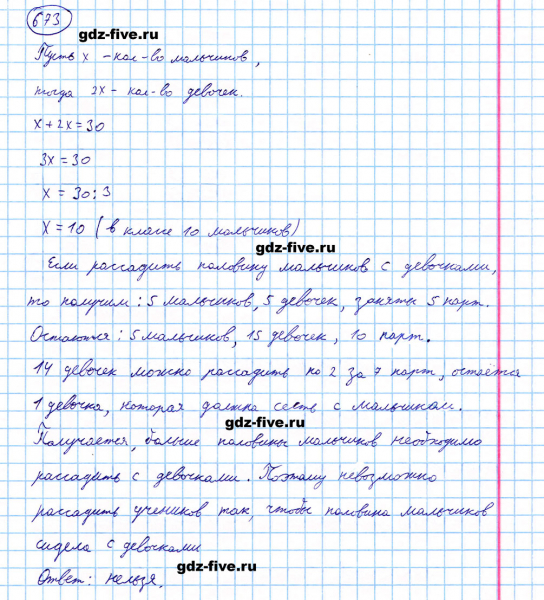 673
gdz-five.ru
Пусть x - кол-во мальчиков,
тогда 2x - кол-во девочек.
x + 2x = 30
3x = 30
x = 30 : 3
x = 10 (в классе 10 мальчиков)
gdz-five.ru
Если рассадить половину мальчиков с девочками,
то получим: 5 мальчиков, 5 девочек, заняты 5 парт.
Остаются: 5 мальчиков, 15 девочек, 10 парт.
14 девочек можно рассадить по 2 за 7 парт, остаётся
1 девочка, которая должна сесть с мальчиком.
gdz-five.ru
Получается, больше половины мальчиков необходимо
рассадить с девочками. Поэтому невозможно
рассадить учеников так, чтобы половина мальчиков
сидела с девочками
Ответ: нельзя.
gdz-five.ru